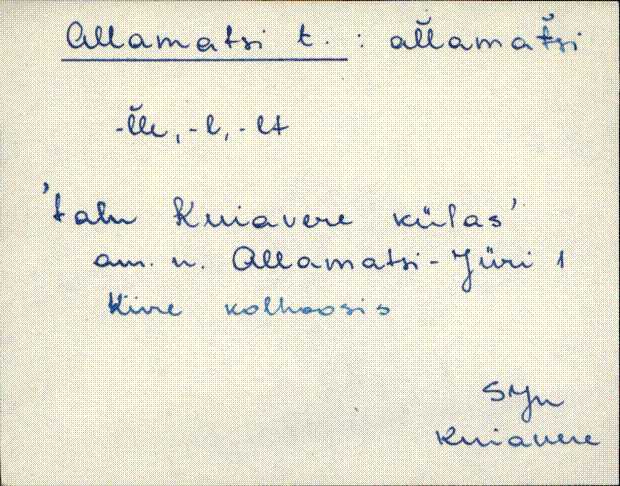 Allamatsi t. : al̆lamat̆si
-l̆le, -l, -lt
'talu Kuiavere külas'
am. n. Allamatsi-Jüri 1
Kiire kolhoosis
SJn
Kuiavere